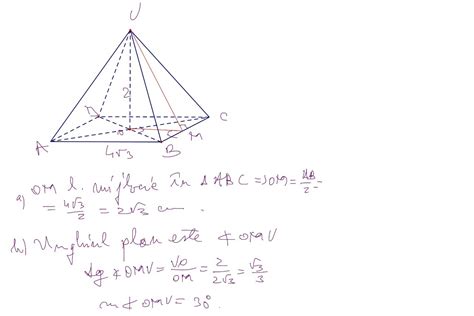 V
2
D
C
O
M
A
B
4√3
a) OM l. mijlocie în Δ ABC ⇒ OM = AB/2 =
= 4√3/2 = 2√3 cm.
b) Unghiul plan este ∢ OMV
tg ∢ OMV = VO/OM = 2/2√3 = √3/3
m ∢ OMV = 30°.